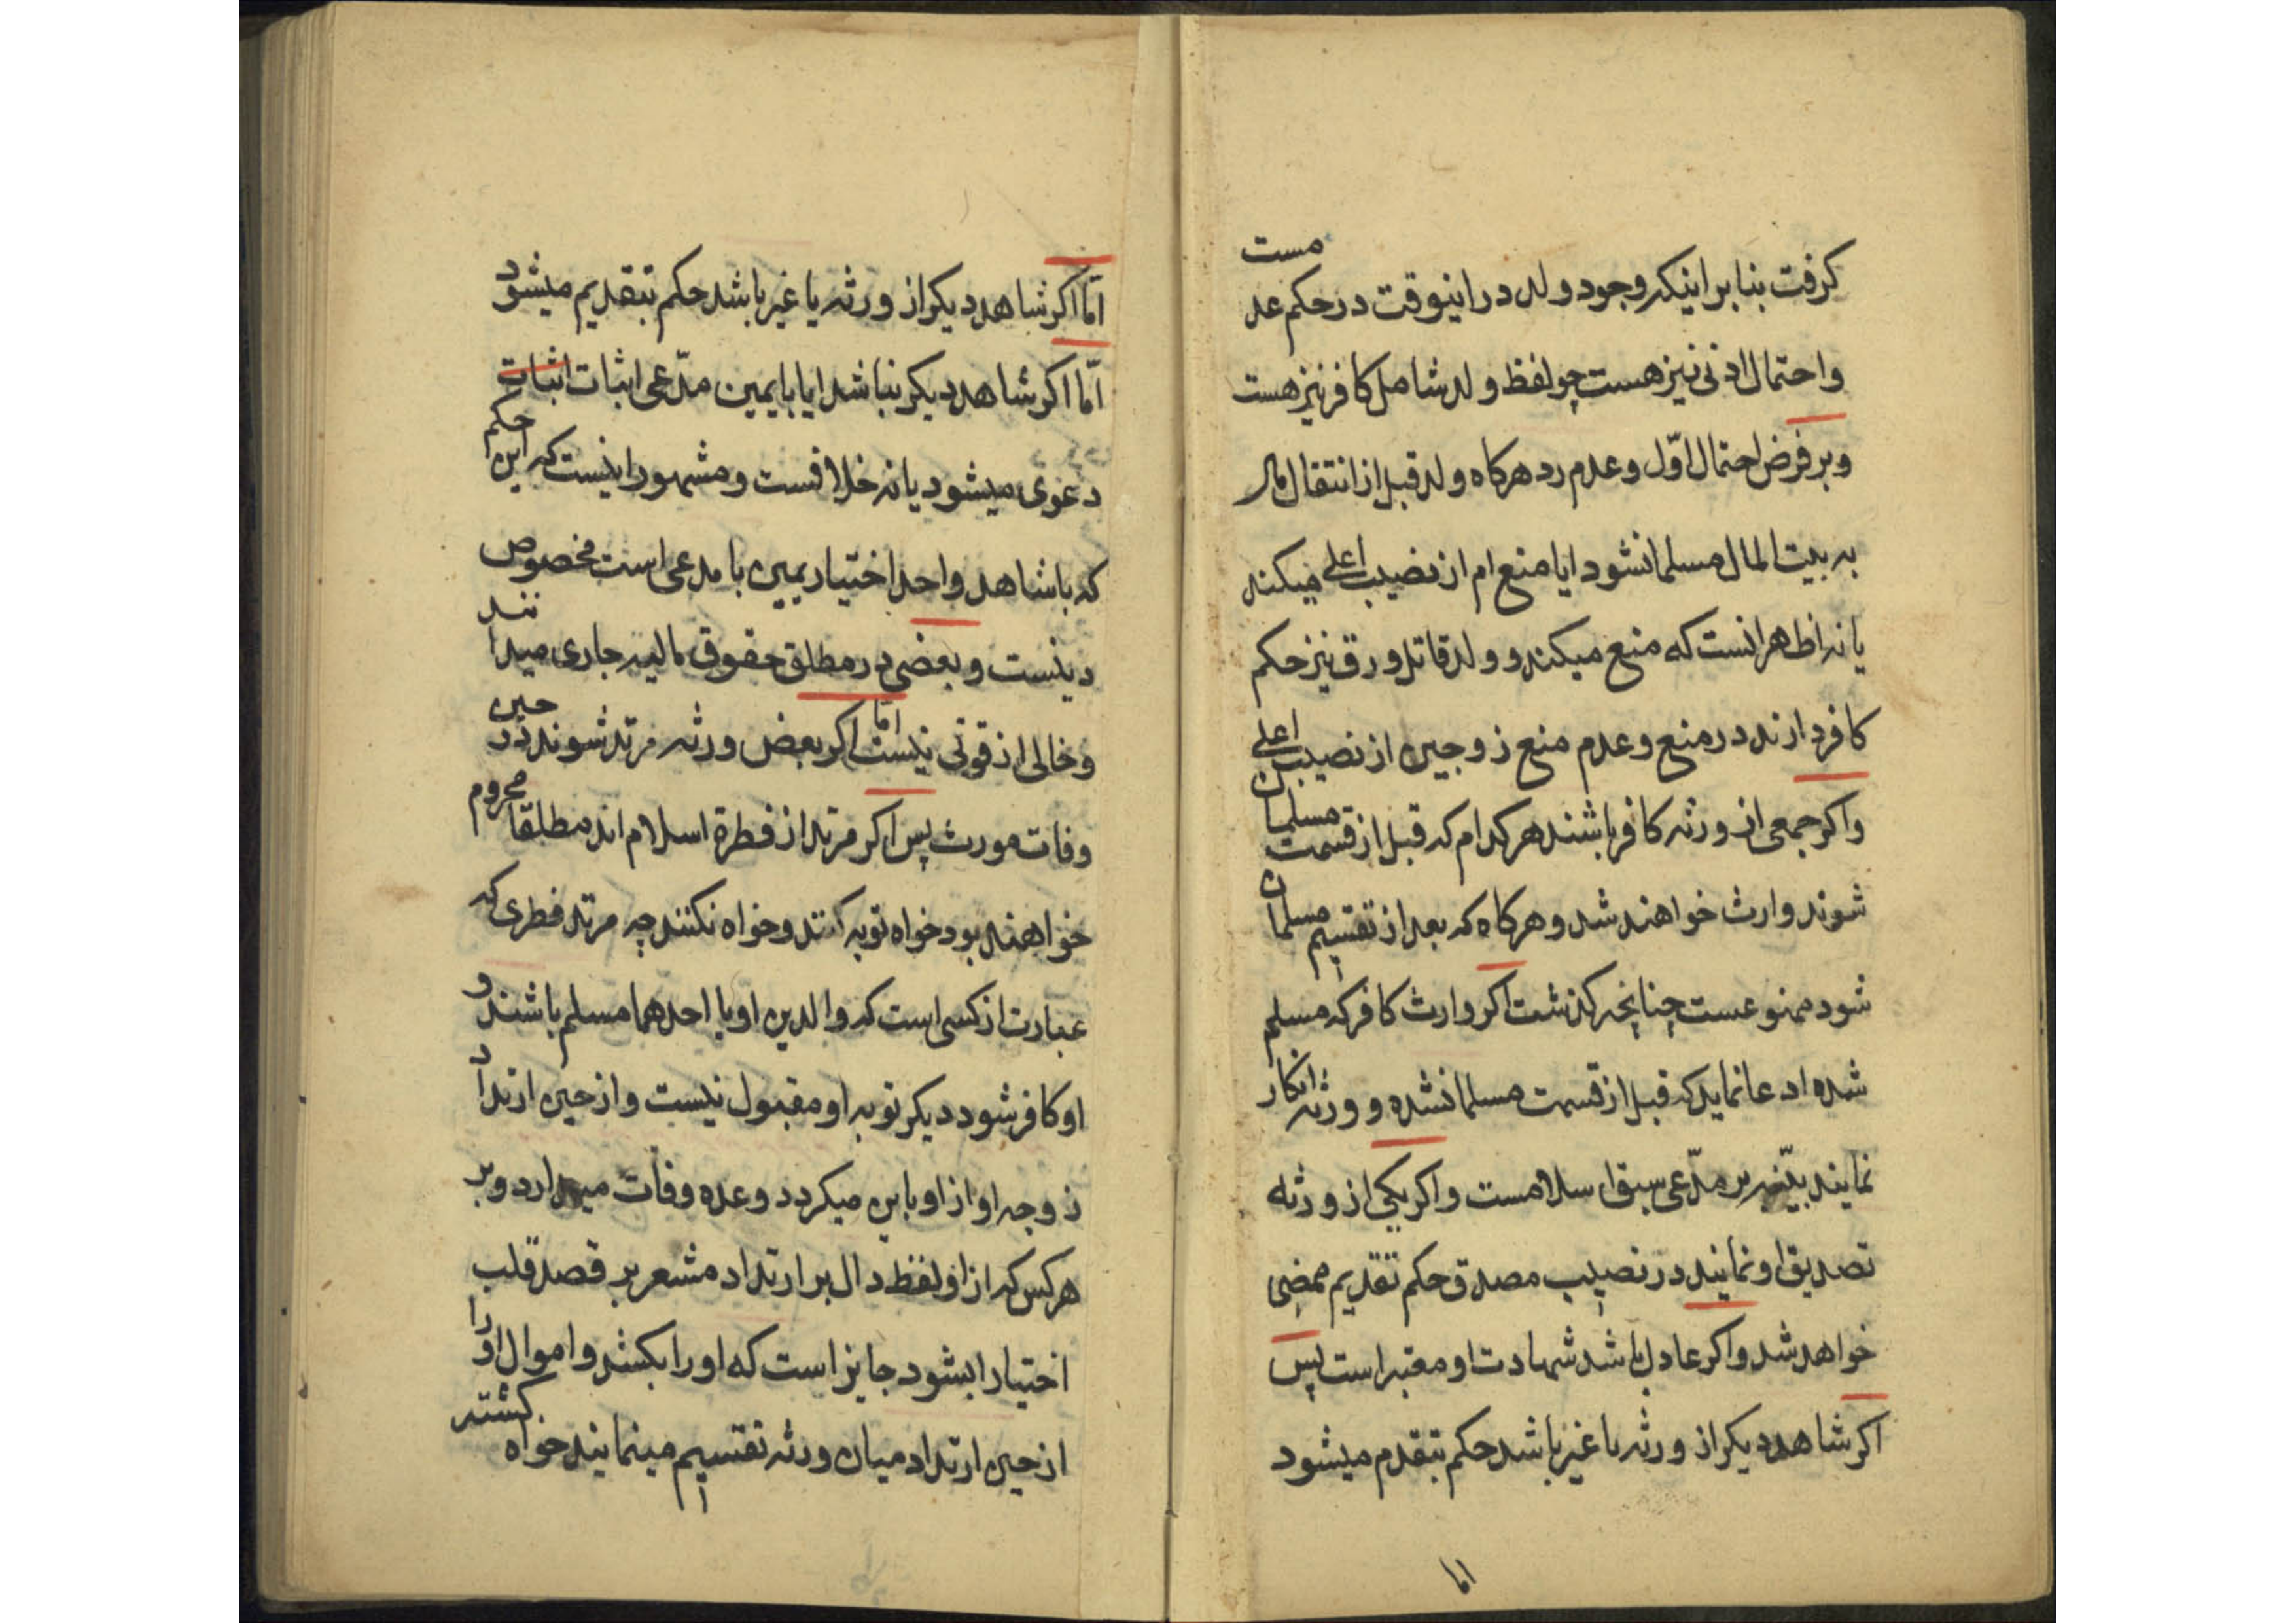 کرفت بنا بر اینکه وجود ولد در اینوقت در حکم عد مست
و احتمال ادنی نیز هست چو لفظ ولد شامل کافر نیز هست
و بر فرض احتمال اوّل و عدم رد هرکاه ولد قبل از انتقال مال
به بیت المال مسلمان نشود ایا منع ام از نصیب اعلی میکند
یا نه اظهر انست که منع میکند و ولد قاتل و رق نیز حکم
کافر دارند در منع و عدم منع زوجین از نصیب اعلی
و اکر جمعی از ورثه کافر باشند هر کدام که قبل از قسمت مسلمان
شوند وارث خواهند شد و هرکاه که بعد از تقسیم مسلمان
شود ممنوعست چنانچه کذشت اکر وارث کافر که مسلم
شده ادعا نماید که قبل از قسمت مسلمان شده و ورثه انکار
نمایند بیّنه بر مدّعی سبق اسلامست و اکر یکی از ورثه
تصدیق او نمایند در نصیب مصدق حکم تقدیم ممضی
خواهد شد و اکر عادل باشد شهادت او معتبر است پس
اکر شاهد دیکر از ورثه یا غیر باشد حکم بتقدم میشود
اما
امّا اکر شاهد دیکر از ورثه یا غیر باشد حکم بتقدیم میشود
امّا اکر شاهد دیکر نباشد ایا با یمین مدّعی اثبات اثبات
دعوی میشود یا نه خلافست و مشهور اینست که این حکم
که با شاهد واحد اختیار یمین با مدعی است مخصوص
دینست و بعضی در مطلق حقوق مالیه جاری میدانند
و خالی از قوتی نیست امّا اکر بعض ورثه مرتد شوند در حین
وفات مورث پس اکر مرتد از فطرة اسلام اند مطلقا محروم
خواهند بود خواه توبه کنند و خواه نکنند چه مرتد فطری که
عبارت از کسی است که والدین او یا احدهما مسلم باشند و
او کافر شود دیکر توبه او مقبول نیست و از حین ارتداد
زوجه او از او باین میکردد و عده وفات میدارد و بر
هر کس که از او لفظ دال بر ارتداد مشعر بر قصد قلب
اختیارا بشود جایز است که او را بکشد و اموال او را
از حین ارتداد میان ورثه تقسیم مینمایند خواه کشته